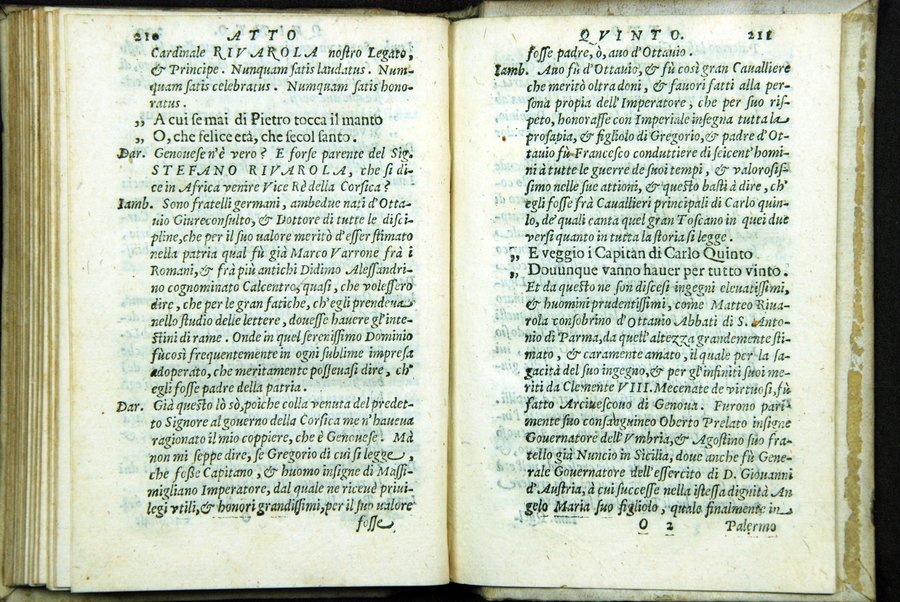 210 ATTO
Cardinale RIVAROLA nostro Legato,
& Principe. Nunquam satis laudatus. Num-
quam satis celebratus. Nunquam satis hono-
ratus.
„ A cui se mai di Pietro tocca il manto
„ O, che felice età, che secol santo.
Dar. Genouese n'è vero? E forse parente del Sig.
STEFANO RIVAROLA, che si di-
ce in Africa venire Vice Rè della Corsica?
Iamb. Sono fratelli germani, ambedue nati d'Otta-
uio Giureconsulto, & Dottore di tutte le disci-
pline, che per il suo valore meritò d'esser stimato
nella patria qual fù già Marco Varrone frà i
Romani, & frà più antichi Didimo Alessandri-
no cognominato Calcentro, quasi, che volessero
dire, che per le gran fatiche, ch'egli prendeua
nello studio delle lettere, douesse hauere gl'inte-
stini di rame. Onde in quel serenissimo Dominio
fù così frequentemente in ogni sublime impresa
adoperato, che meritamente posseuasi dire, ch'
egli fosse padre della patria.
Dar. Già questo lò sò, poiche colla venuta del predet-
to Signore al gouerno della Corsica me n'haueua
ragionato il mio coppiere, che è Genouese. Mà
non mi seppe dire, se Gregorio di cui si legge,
che fosse Capitano, & huomo insigne di Massi-
migliano Imperatore, dal quale ne riceuè priui-
legi vtili, & honori grandissimi, per il suo valore
fosse
QVINTO. 211
fosse padre, ò, auo d'Ottauio.
Iamb. Auo fù d'Ottauio, & fù così gran Caualliere
che meritò oltra doni, & fauori fatti alla per-
sona propia dell'Imperatore, che per suo ris-
peto, honorasse con Imperiale insegna tutta la
prosapia, & figliolo di Gregorio, & padre d'Ot-
tauio fù Francesco conduttiere di seicent'homi-
ni à tutte le guerre de suoi tempi, & valorosis-
simo nelle sue attioni, & questo basti à dire, ch'
egli fosse frà Cauallieri principali di Carlo quin-
to, de' quali canta quel gran Toscano in quei due
versi quanto in tutta la storia si legge.
„ E veggio i Capitan di Carlo Quinto
„ Douunque vanno hauer per tutto vinto.
Et da questo ne son discesi ingegni eleuatissimi,
& huomini prudentissimi, come Matteo Riua-
rola consobrino d'Ottauio Abbati di S. Anto-
nio di Parma, da quell'altezza grandemente sti-
mato, & caramente amato, il quale per la sa-
gacità del suo ingegno, & per gl'infiniti suoi me-
riti da Clemente VIII. Mecenate de virtuosi, fù
fatto Arciuescouo di Genoua. Furono pari-
mente suo consanguineo Oberto Prelato insigne
Gouernatore dell'Vmbria, & Agostino suo fra-
tello già Nuncio in Sicilia, doue anche fù Gene-
rale Gouernatore dell'essercito di D. Giouanni
d'Austria, à cui successe nella istessa dignità An-
gelo Maria suo figliolo, quale finalmente in
O 2 Palermo